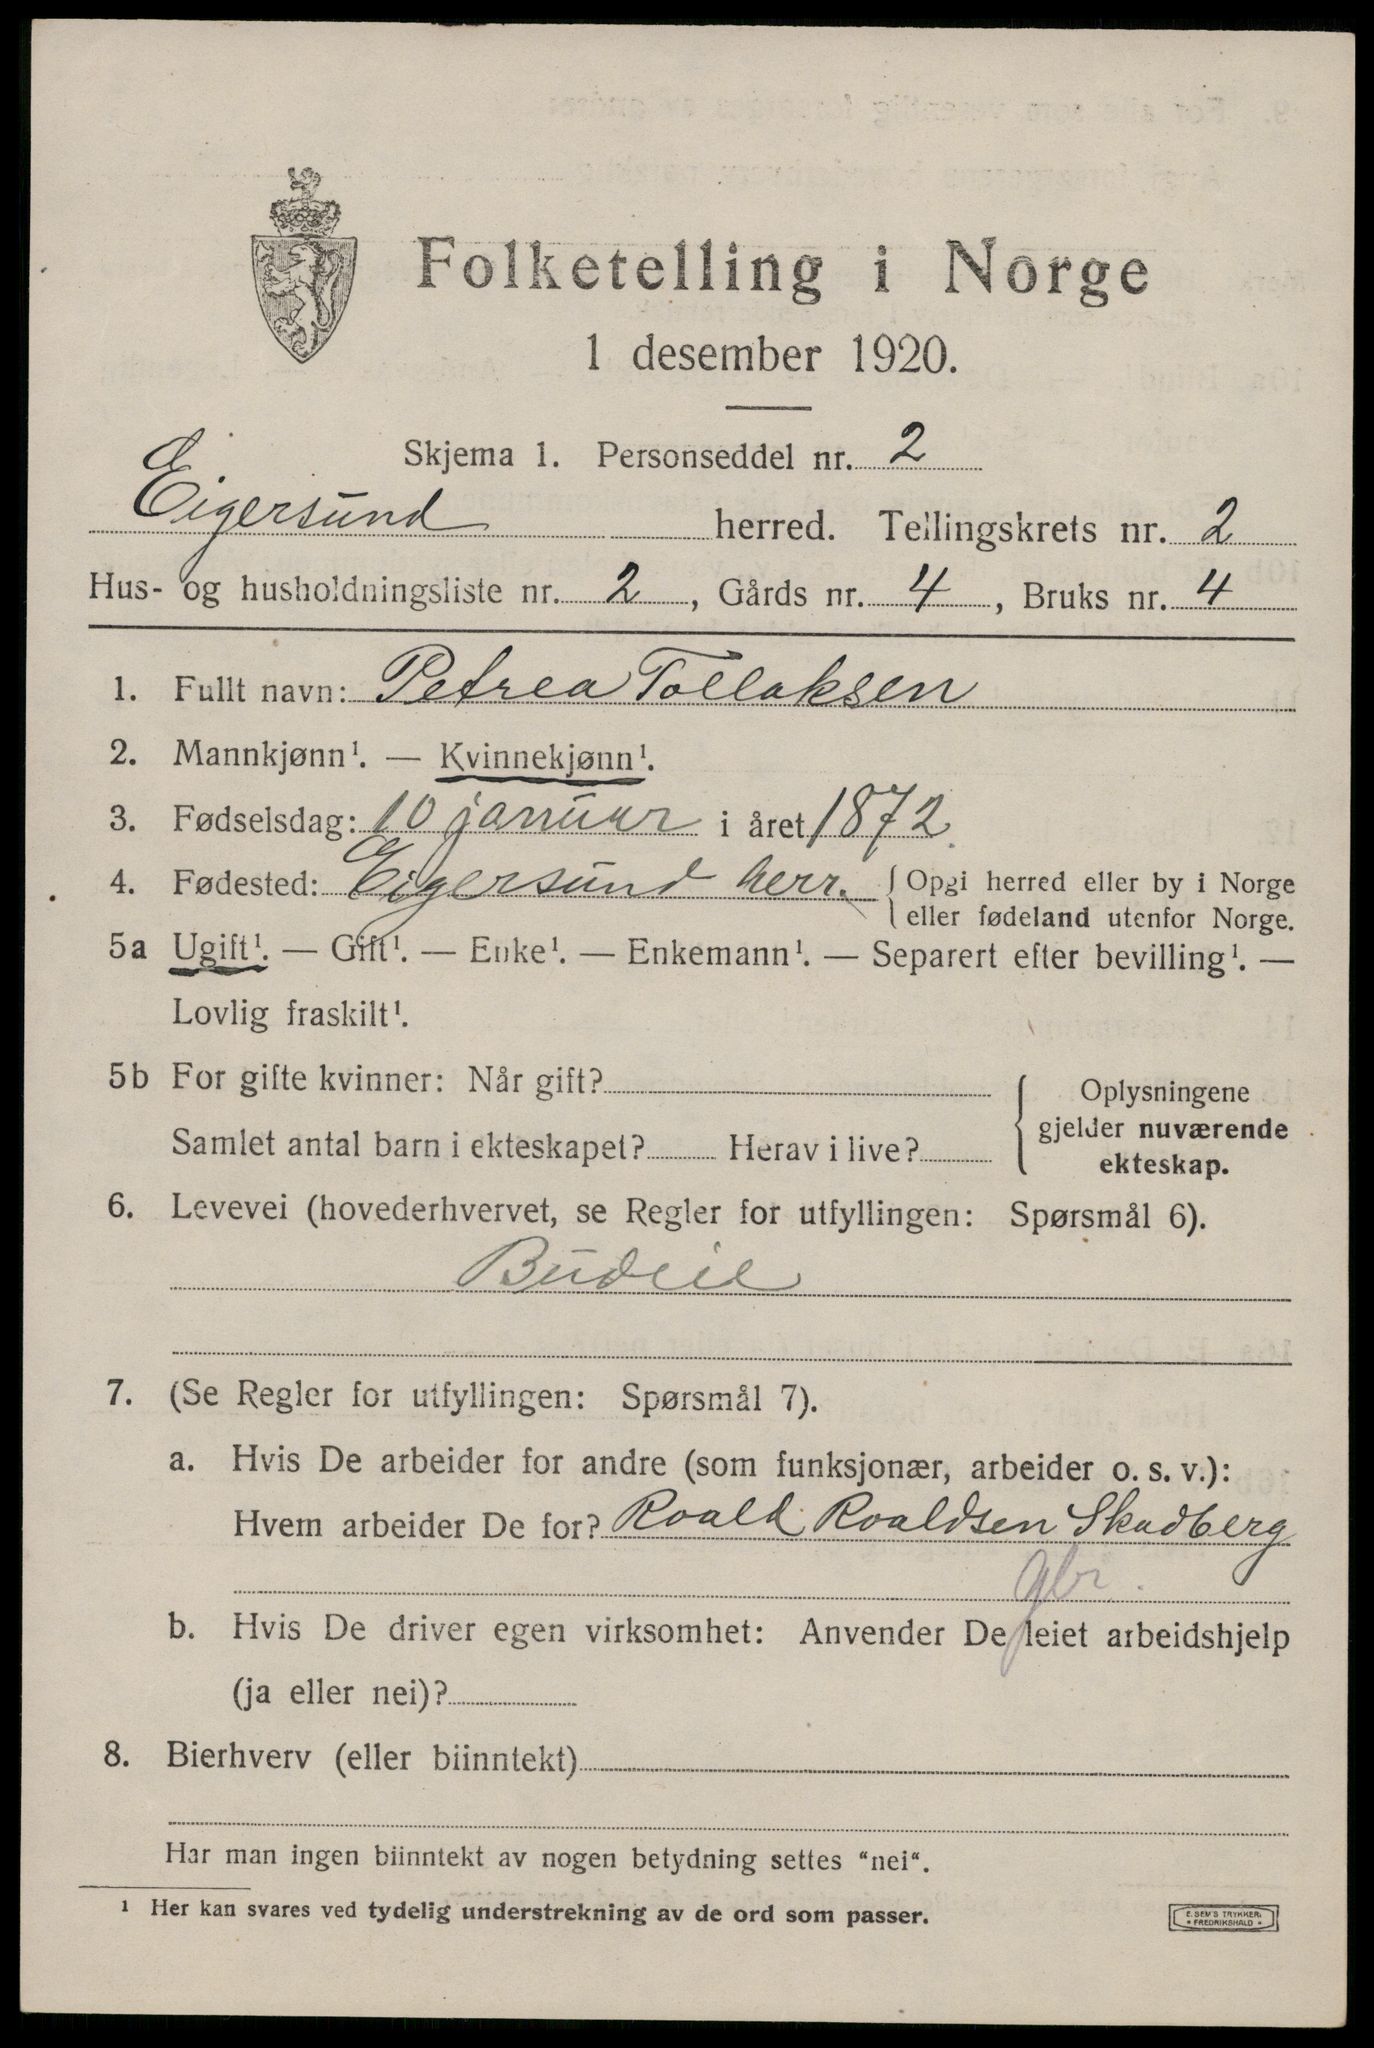 Folketelling i Norge
1 desember 1920.
Skjema 1. Personseddel nr. 2
Eigersund herred. Tellingskrets nr. 2
Hus- og husholdningsliste nr. 2, Gårds nr. 4, Bruks nr. 4
1. Fullt navn: Petrea Tollaksen
2. Mannkjønn¹. — Kvinnekjønn¹.
3. Fødselsdag: 10 januar i året 1872
4. Fødested: Eigersund herr. { Opgi herred eller by i Norge
eller fødeland utenfor Norge.
5a Ugift¹. — Gift¹. — Enke¹. — Enkemann¹. — Separert efter bevilling¹. —
Lovlig fraskilt¹.
5b For gifte kvinner: Når gift?
Samlet antal barn i ekteskapet? Herav i live?
Oplysningene
gjelder nuværende
ekteskap.
6. Levevei (hovederhvervet, se Regler for utfyllingen: Spørsmål 6).
Budeie
7. (Se Regler for utfyllingen: Spørsmål 7).
a. Hvis De arbeider for andre (som funksjonær, arbeider o. s. v.):
Hvem arbeider De for? Roald Roaldsen Skadberg
gbr.
b. Hvis De driver egen virksomhet: Anvender De leiet arbeidshjelp
(ja eller nei)?
8. Bierhverv (eller biinntekt)
Har man ingen biinntekt av nogen betydning settes “nei“.
¹ Her kan svares ved tydelig understrekning av de ord som passer.
E. SEM'S TRYKKERI
• FREDRIKSHALD •